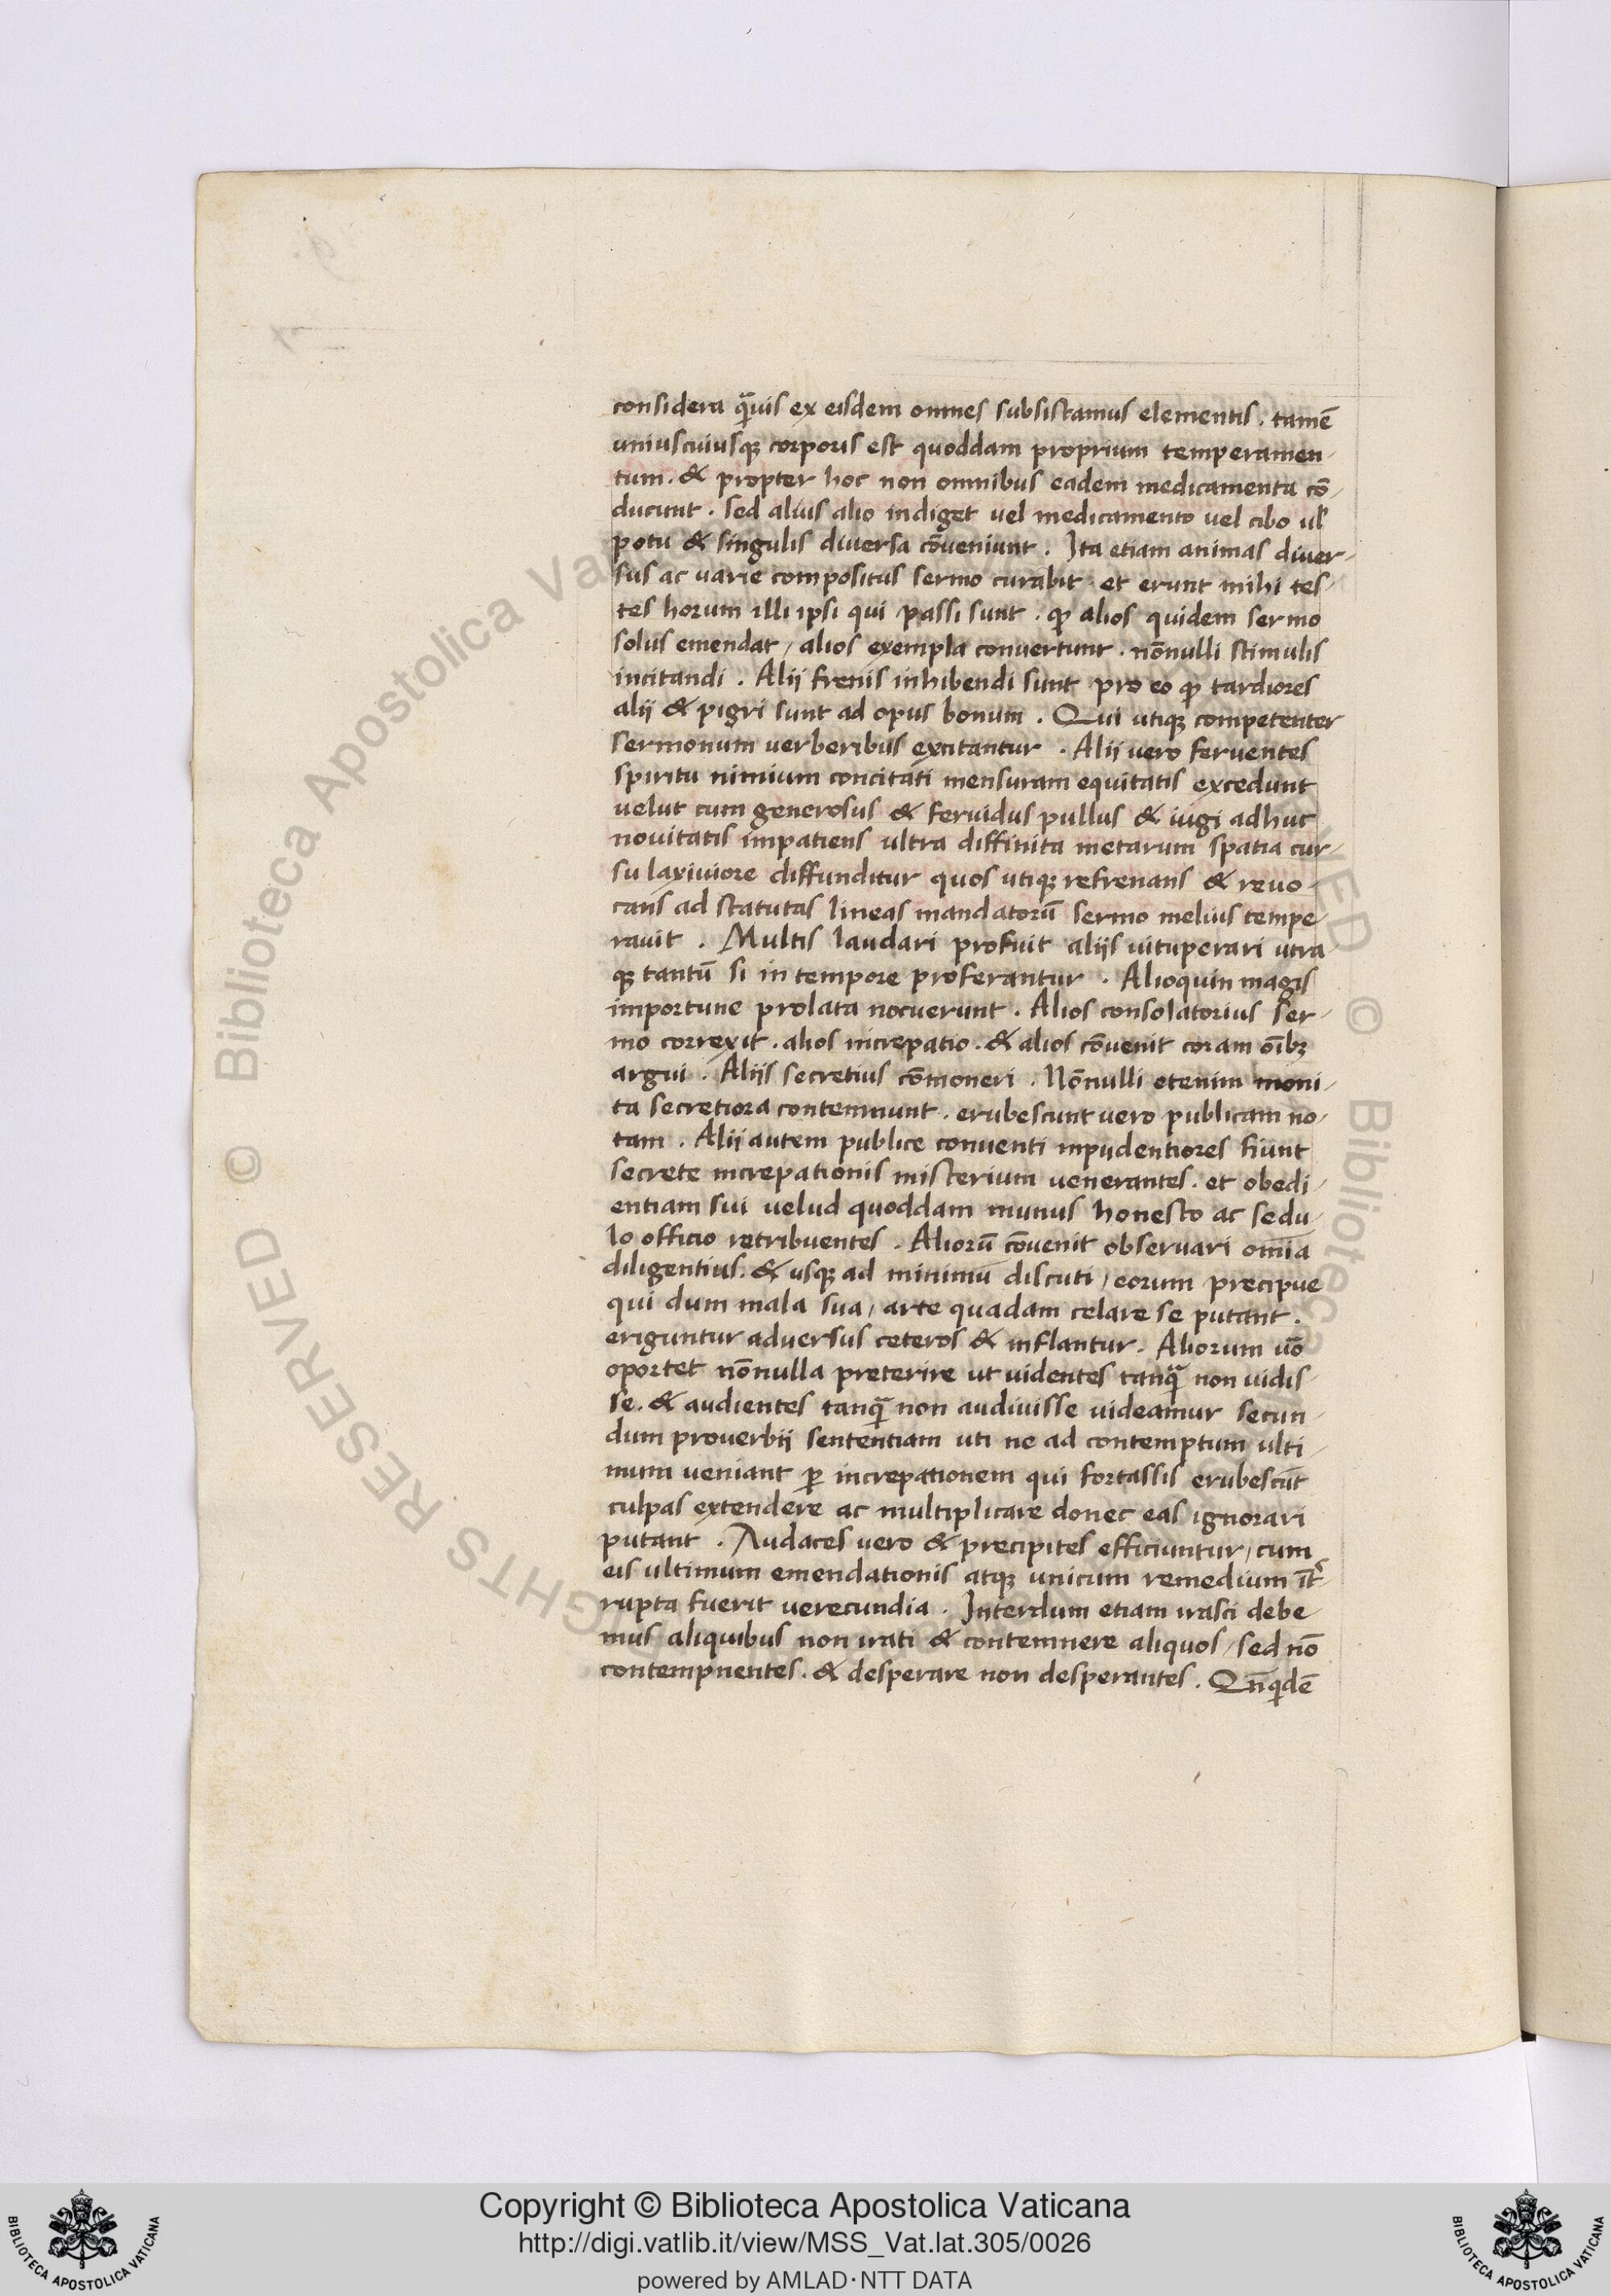 considera q̃uis ex eisdem omnes subsistamus elementis . tamē
uniuscuiusqꝫ corporis est quoddam proprium temperamen-
tum . & propter hoc non omnibus eadem medicamenta cō-
ducunt . sed alius alio indiget vel medicamento vel cibo ul'
potu & singulis diversa cōveniunt . Ita etiam animas diver-
sus ac varie compositus sermo curabit . et erunt mihi tes-
tes horum illi ipsi qui passi sunt . qꝫ alios quidem sermo
solus emendat / alios exempla convertunt . nōnulli stimulis
incitandi . Alii frenis inhibendi sunt pro eo qꝫ tardiores
alij & pigri sunt ad opus bonum . Qui utiqꝫ competenter
sermonum verberibus excitantur . Alii vero ferventes
spiritu nimium concitati mensuram equitatis excedunt
velut cum generosus & fervidus pullus & iugi adhuc
novitatis impatiens ultra diffinita metarum spatia cur-
su laxiviore diffunditur quos utiqꝫ refrenans & revo-
cans ad statutas lineas mandatorū sermo melius tempe-
ravit . Multis laudari profuit aliis vituperari utra-
qꝫ tantū si in tempore proferantur . Alioquin magis
importune prolata nocuerunt . Alios consolatorius ser-
mo correxit . alios increpatio . & alios cōvenit coram oībꝫ
argui . Aliis secretius cōmoneri . Nōnulli etenim moni-
ta secretiora contemnunt . erubescunt vero publicam no-
tam . Alii autem publice conventi inpudentiores fiunt
secrete increpationis misterium venerantes . et obedi-
entiam sui velud quoddam munus honesto ac sedu-
lo officio retribuentes . Aliorū cōvenit observari omīa
diligentius . & usqꝫ ad minimū discuti / eorum precipue
qui dum mala sua / arte quadam celare se putant .
eriguntur adversus ceteros & inflantur . Aliorum vō
oportet nōnulla preterire ut videntes tanq̃ non vidis-
se . & audientes tanq̃ non audivisse videamur secun-
dum proverbii sententiam uti ne ad contemptum ulti-
mum veniant ꝑ increpationem qui fortassis erubescūt
culpas extendere ac multiplicare donec eas ignorari
putant . Audaces vero & precipites efficiuntur / cum
eis ultimum emendationis atqꝫ unicum remedium īt̃-
rupta fuerit verecundia . Interdum etiam irasci debe-
mus aliquibus non irati & contemnere aliquos / sed nō
contempnentes . & desperare non desperantes . Qn̄qidē
Copyright © Biblioteca Apostolica Vaticana
http://digi.vatlib.it/view/MSS_Vat.lat.305/0026
powered by AMLAD·NTT DATA